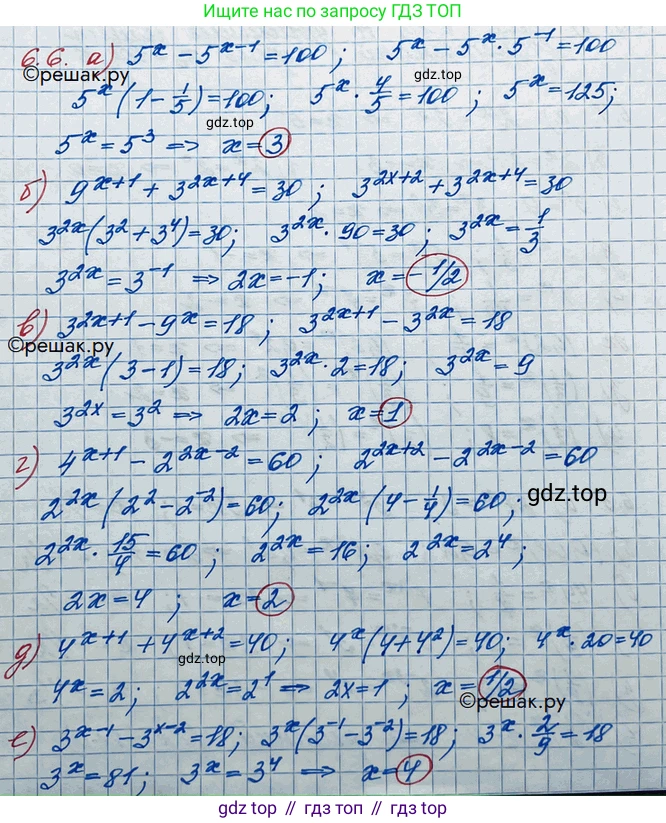 Ищите нас по запросу ГДЗ ТОП
6.6. а) 5^x - 5^{x-1} = 100 ; 5^x - 5^x · 5^{-1} = 100
©решак.ру
gdz.top
5^x (1 - 1/5) = 100; 5^x · 4/5 = 100 ; 5^x = 125;
gdz.top
5^x = 5^3 => x = 3
б) 9^{x+1} + 3^{2x+4} = 30 ; 3^{2x+2} + 3^{2x+4} = 30
3^{2x} (3^2 + 3^4) = 30; 3^{2x} · 90 = 30 ; 3^{2x} = 1/3
3^{2x} = 3^{-1} => 2x = -1 ; x = -1/2
в) 3^{2x+1} - 9^x = 18 ; 3^{2x+1} - 3^{2x} = 18
©решак.ру
3^{2x} (3 - 1) = 18; 3^{2x} · 2 = 18; 3^{2x} = 9
3^{2x} = 3^2 => 2x = 2 ; x = 1
г) 4^{x+1} - 2^{2x-2} = 60 ; 2^{2x+2} - 2^{2x-2} = 60
2^{2x} (2^2 - 2^{-2}) = 60; 2^{2x} (4 - 1/4) = 60 ;
gdz.top
2^{2x} · 15/4 = 60 ; 2^{2x} = 16 ; 2^{2x} = 2^4 ;
2x = 4 ; x = 2
д) 4^{x+1} + 4^{x+2} = 40; 4^x (4 + 4^2) = 40; 4^x · 20 = 40
gdz.top
4^x = 2 ; 2^{2x} = 2^1 => 2x = 1 ; x = 1/2
©решак.ру
е) 3^{x-1} - 3^{x-2} = 18; 3^x (3^{-1} - 3^{-2}) = 18 ; 3^x · 2/9 = 18
3^x = 81; 3^x = 3^4 => x = 4
gdz.top // гдз.топ // gdz.top // гдз.топ